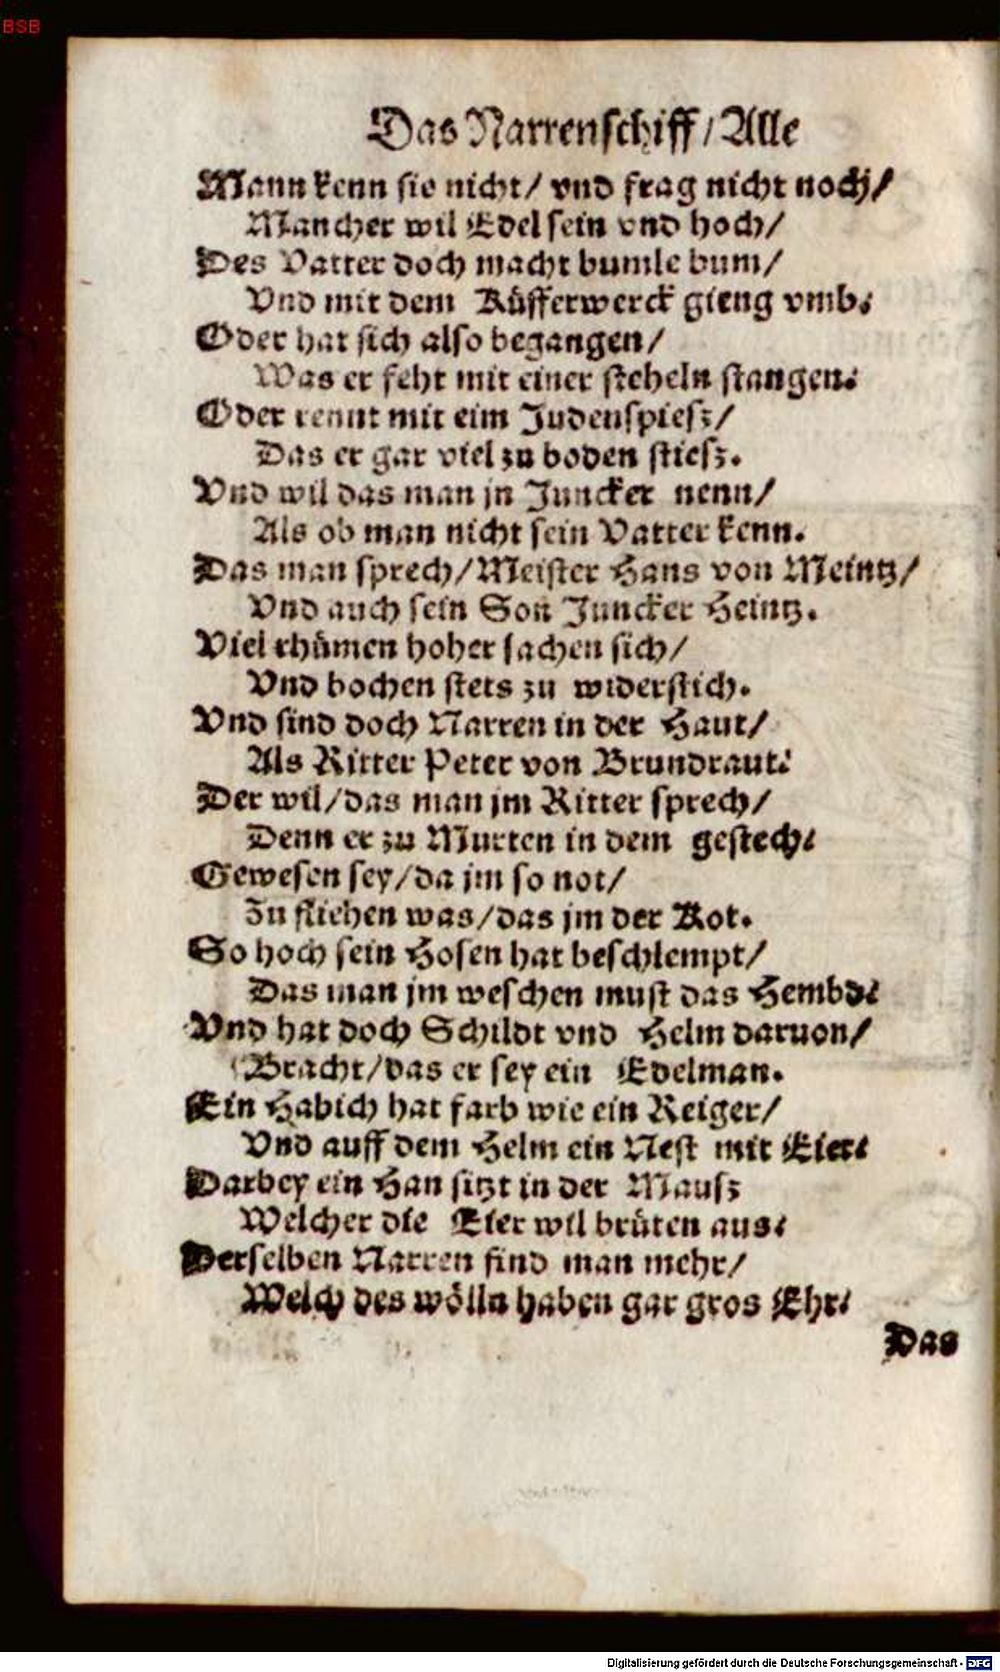 BSB
Das Narrenschiff / Alle
Mann kenn sie nicht / vnd frag nicht noch /
Mancher wil Edel sein vnd hoch /
Des Vatter doch macht bumle bum /
Vnd mit dem Küfferwerck gieng vmb.
Oder hat sich also begangen /
Was er feht mit einer steheln stangen.
Oder rennt mit eim Judenspiesz /
Das er gar viel zu boden stiesz.
Vnd wil das man jn Juncker nenn /
Als ob man nicht sein Vatter kenn.
Das man sprech / Meister Hans von Meintz /
Vnd auch sein Son Juncker Heintz.
Viel rhümen hoher sachen sich /
Vnd bochen stets zu widerstich.
Vnd sind doch Narren in der Haut /
Als Ritter Peter von Brundraut.
Der wil / das man jm Ritter sprech /
Denn er zu Murten in dem gestech.
Gewesen sey / da jm so not /
Zu fliehen was / das jm der Kot.
So hoch sein Hosen hat beschlempt /
Das man jm weschen must das Hembd.
Vnd hat doch Schildt vnd Helm daruon /
Bracht / das er sey ein Edelman.
Ein Habich hat farb wie ein Reiger /
Vnd auff dem Helm ein Nest mit Eier.
Darbey ein Han sitzt in der Mausz
Welcher die Eier wil brüten aus.
Derselben Narren find man mehr /
Welch des wölln haben gar gros Ehr.
Das
Digitalisierung gefördert durch die Deutsche Forschungsgemeinschaft - DFG